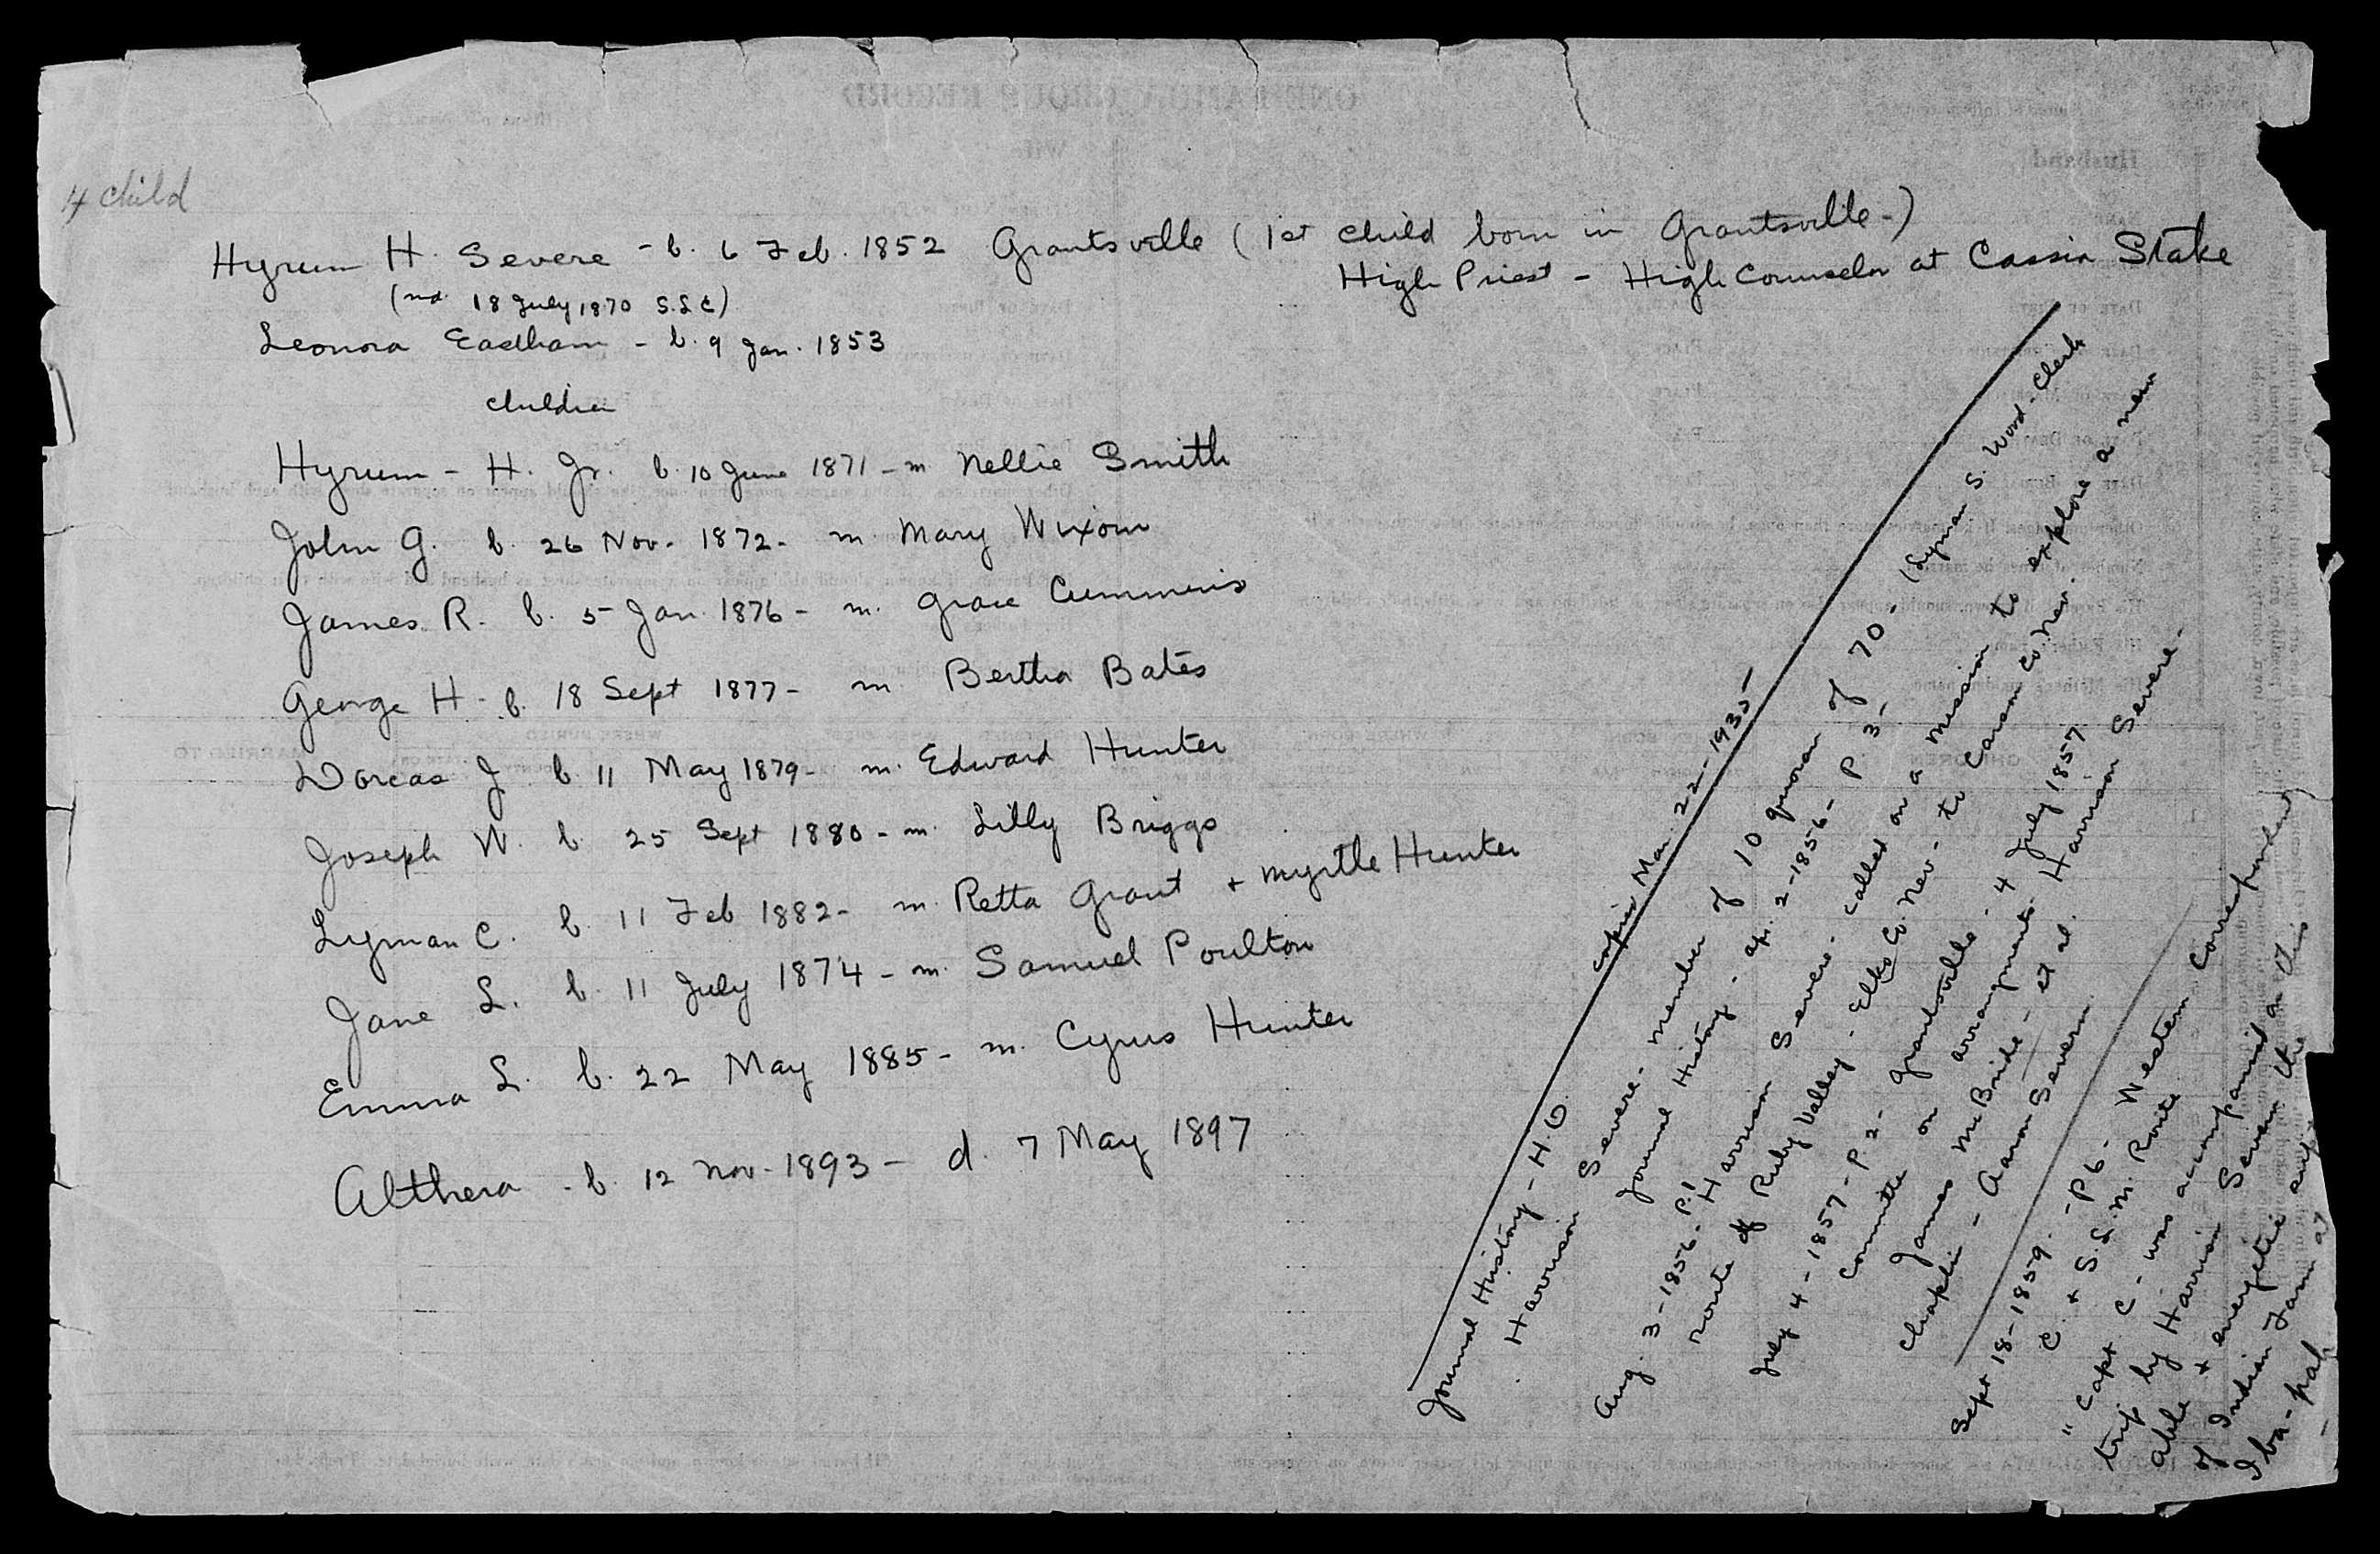 4 child
Hyrum H. Severe - b. 6 Feb. 1852 Grantsville (1st child born in Grantsville-)
High Priest - High Counselor at Cassia Stake
(md. 18 July 1870 S.L.C)
Leonora Eastham - b. 9 Jan. 1853
children
Hyrum - H. Jr. b. 10 June 1871 - m Nellie Smith
John G. b. 26 Nov. 1872 - m Mary Wixom
James R. b. 5 Jan. 1876 - m. Grace Cummins
George H - b. 18 Sept 1877 - m Bertha Bates
Dorcas J b. 11 May 1879 - m. Edward Hunter
Joseph W. b. 25 Sept 1880 - m. Lilly Briggs
Lyman C. b. 11 Feb 1882 - m. Retta Grant + Myrtle Hunter
Jane L. b. 11 July 1874 - m. Samuel Poulton
Emma L. b. 22 May 1885 - m. Cyrus Hunter
Althera - b. 12 Nov. 1893 - d. 7 May 1897
Journal History - H.O. copied Mar. 22 - 1935
Harrison Severe - member of 10 quorum of 70 - (Lyman S. Wood - Clerk
Journal History - Apr. 2 - 1856 - P. 3 -
Aug. 3 - 1856 - P.1 Harrison Severe - called on a mission to explore a new
route of Ruby Valley - Elko Co. Nev - to Carson Co. Nev.
July 4 - 1857 - P. 2 - Grantsville - 4 July 1857
Committe on arrangments Harrison Severe -
James McBride - et al.
Chaplin - Aaron Severn
Sept 18 - 1859. - P 6 - Western Correspondence
C. + S.L.M. Route
"Capt. C - was accompanied on this
trip by Harrison Sevan the
able + energetic
of Indian Farm at
Iba-pah